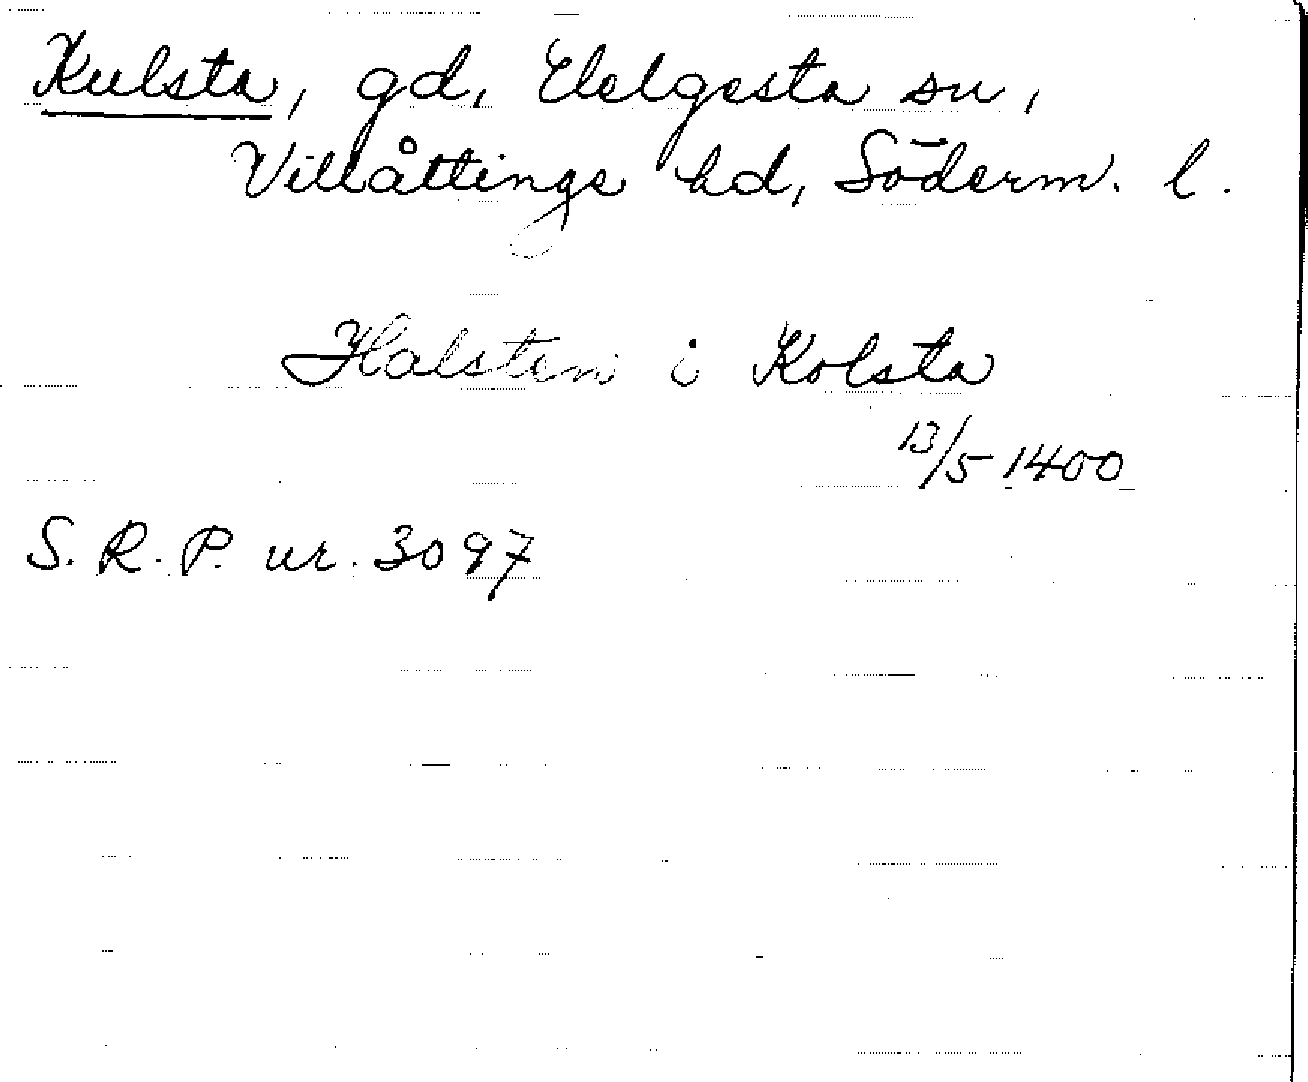 Kulsta, gd, Helgesta sn,
Villåttinge hd, Söderm. l.
Halsten i Kolsta
13/5 1400
S. R. P. nr. 3097